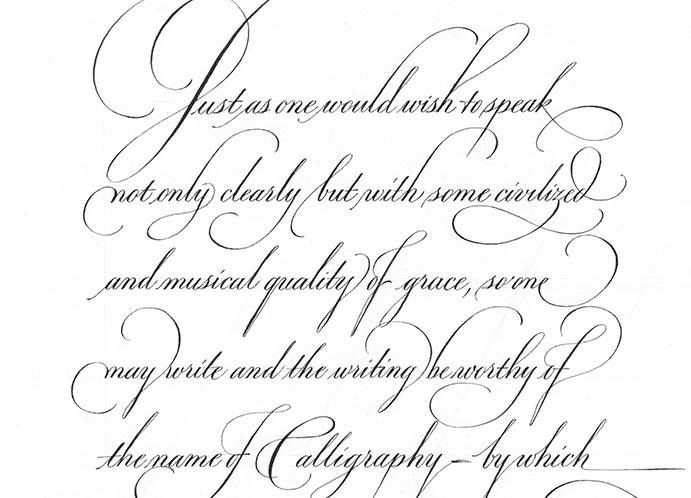 Just as one would wish to speak
not only clearly but with some civilized
and musical quality of grace, so one
may write and the writing be worthy of
the name of Calligraphy — by which